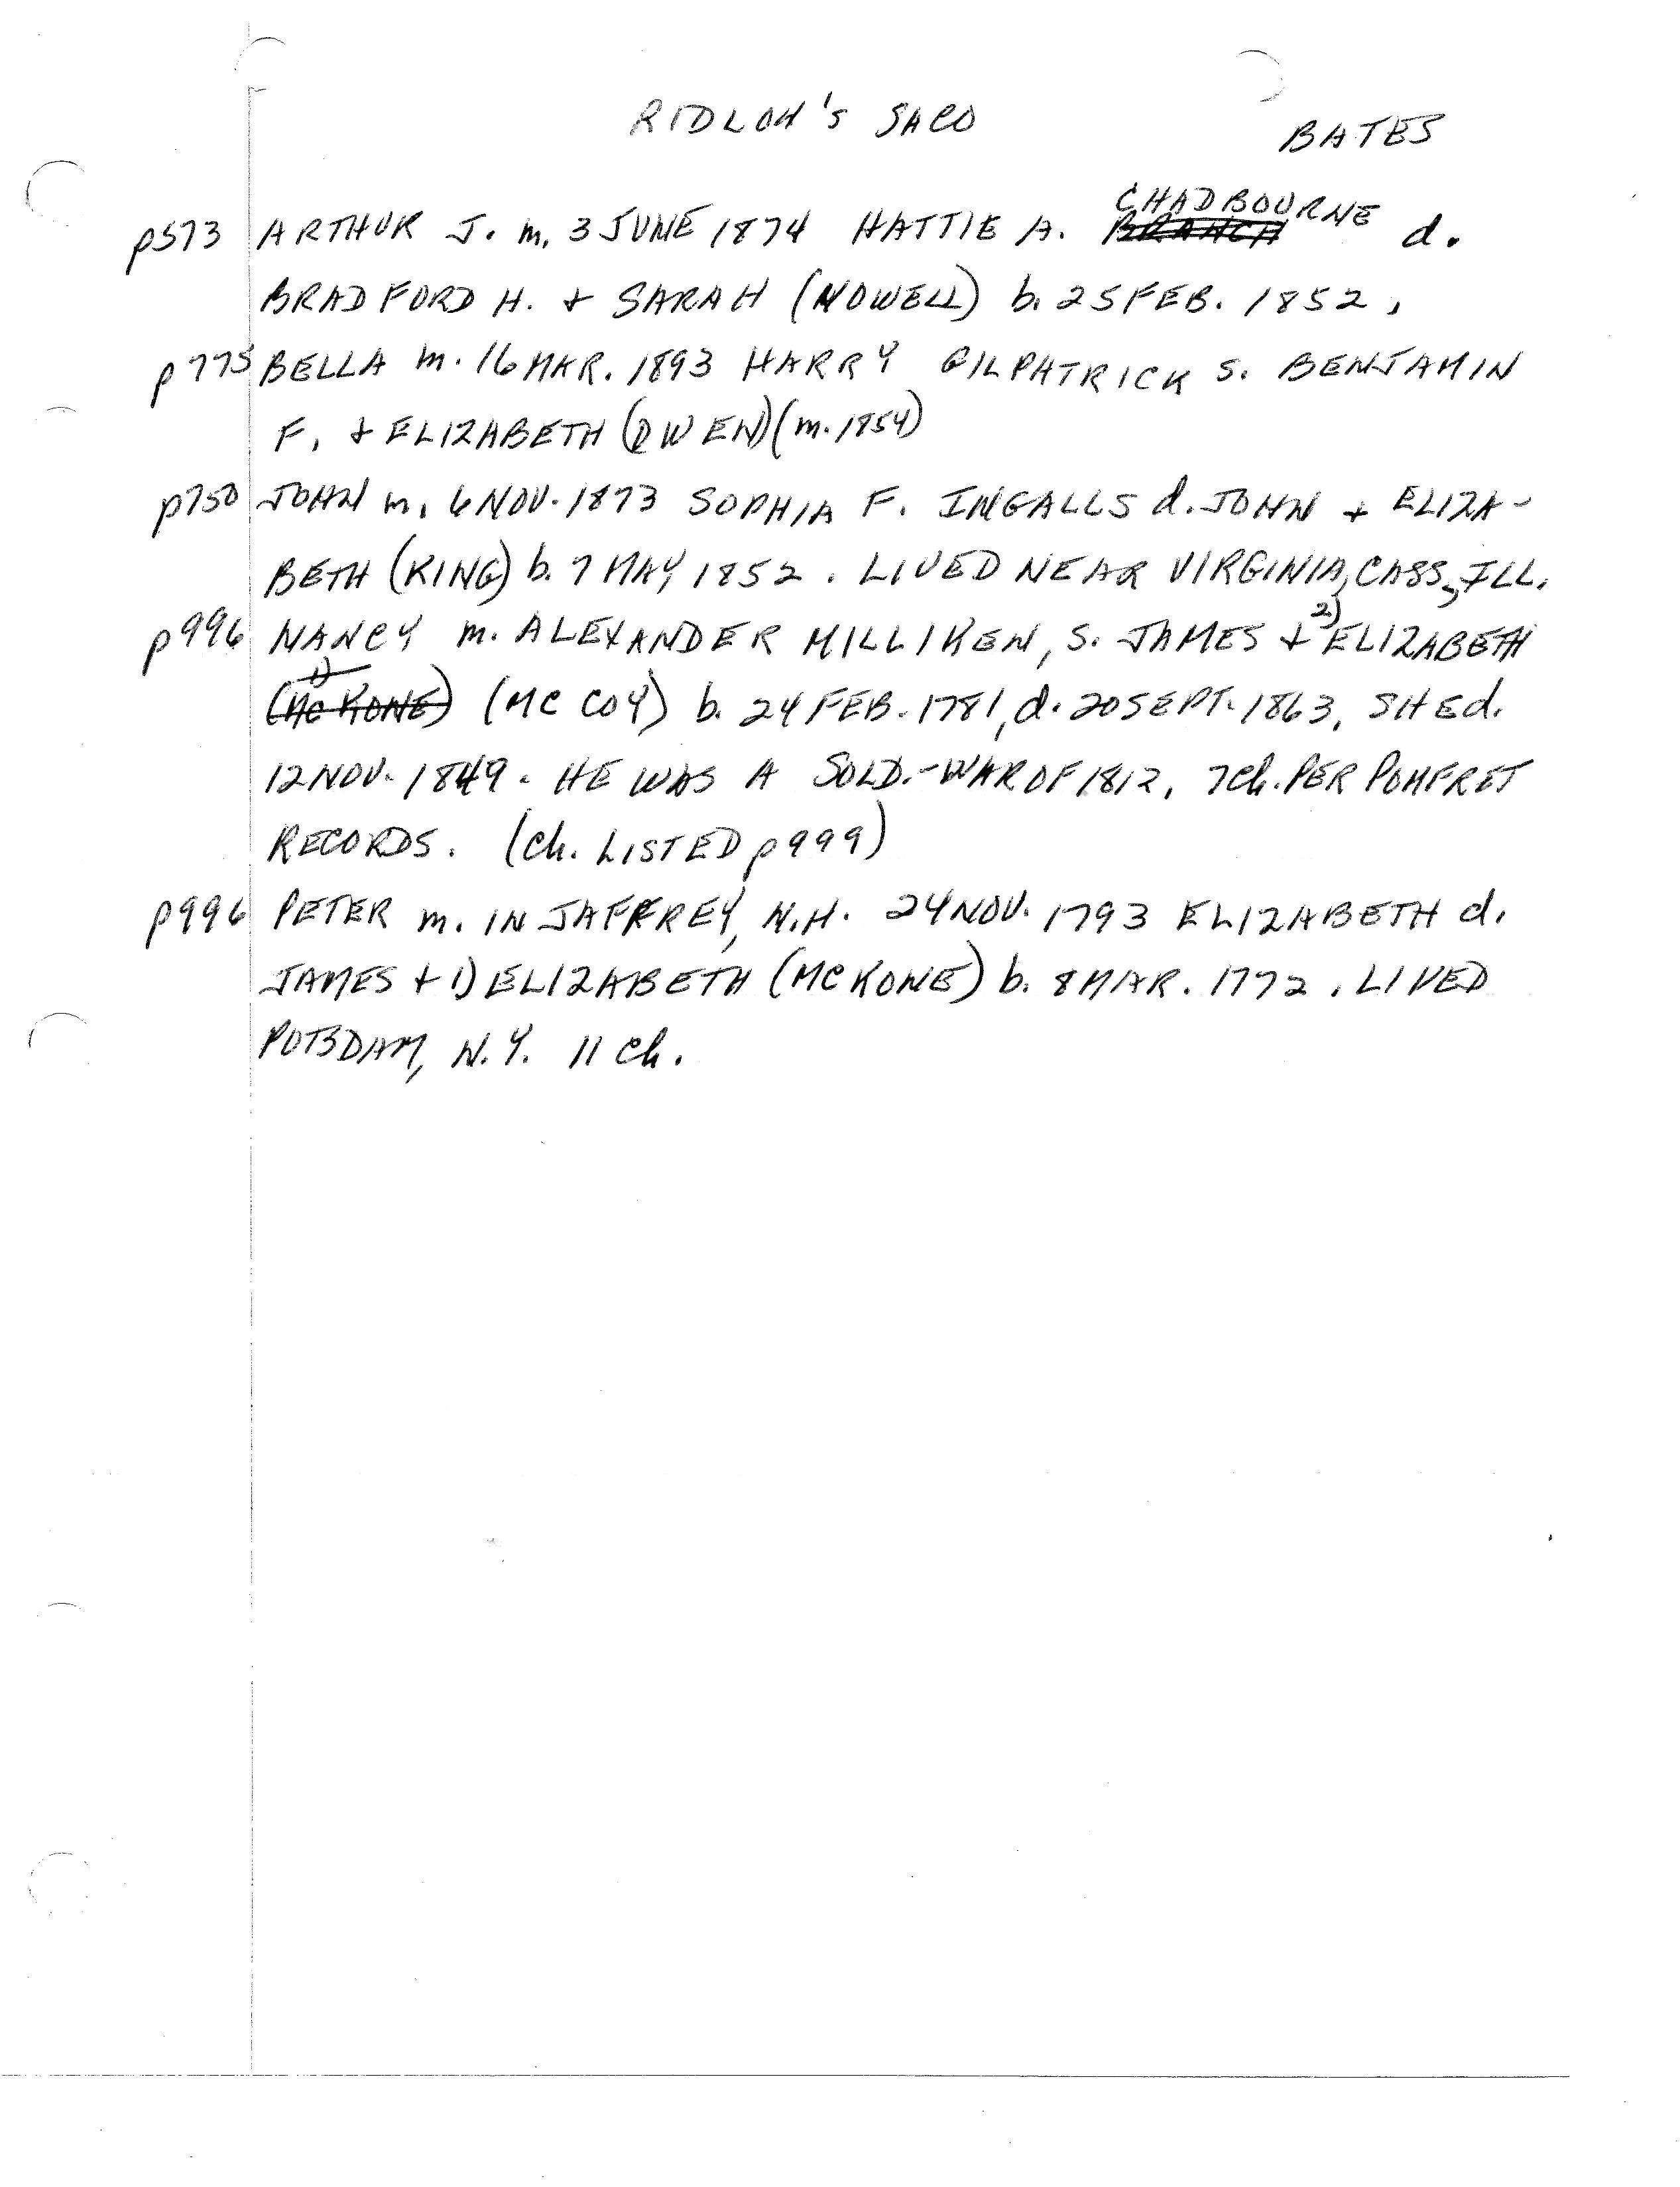 RIDLON'S SACO
BATES
p573 ARTHUR J. m. 3 JUNE 1874 HATTIE A. CHADBOURNE d.
BRADFORD H. + SARAH (NOWELL) b. 25 FEB. 1852.
p775 BELLA m. 16 MAR. 1893 HARRY GILPATRICK S. BENJAMIN
F. + ELIZABETH (OWEN) (m. 1854)
p750 JOHN m. 6 NOV. 1873 SOPHIA F. INGALLS d. JOHN + ELIZA-
BETH (KING) b. 7 MAY 1852. LIVED NEAR VIRGINIA, CASS, ILL.
p996 NANCY m. ALEXANDER MILLIKEN, S. JAMES + 2) ELIZABETH
1) (MC KONE) (MC COY) b. 24 FEB. 1781, d. 20 SEPT. 1863. SHE d.
12 NOV. 1849. HE WAS A SOLD.-WAR OF 1812. 7 Ch. PER POMFRET
RECORDS. (Ch. LISTED p999)
p996 PETER m. IN JAFFREY, N.H. 24 NOV. 1793 ELIZABETH d.
JAMES + 1) ELIZABETH (MC KONE) b. 8 MAR. 1772. LIVED
POTSDAM, N.Y. 11 Ch.